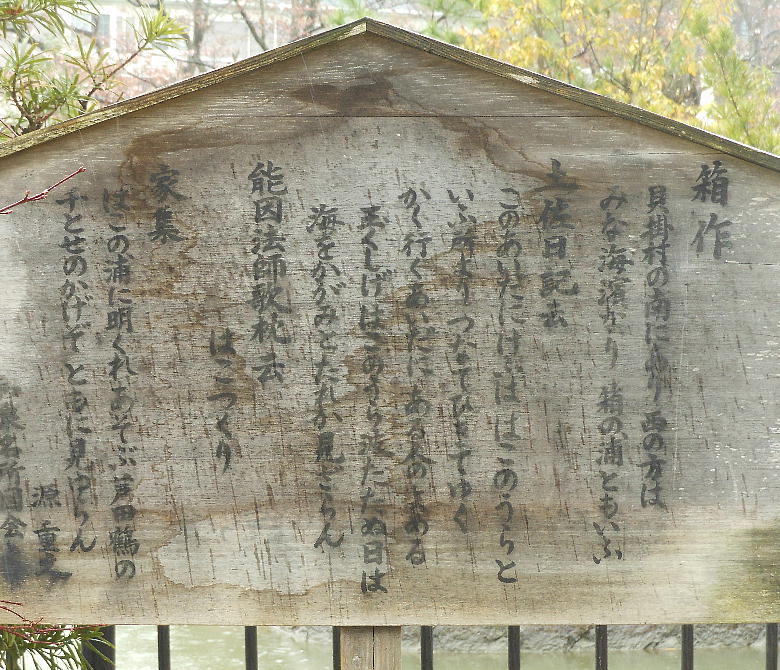 箱作
貝掛村の南にあり西の方は
みな海濱なり箱の浦ともいふ
土佐日記云
このあいだにけふははこのうらと
いふ所よりつなてひきてゆく
かく行くあいだにある人のよめる
玉くしげはこのうら波たたぬ日は
海をかがみとたれか見ざらん
能因法師歌枕云
はこつくり
家集
はこの浦に明くれあそぶ芦田鶴の
千とせのかげぞともに見ゆらん
源重之
泉名所図会